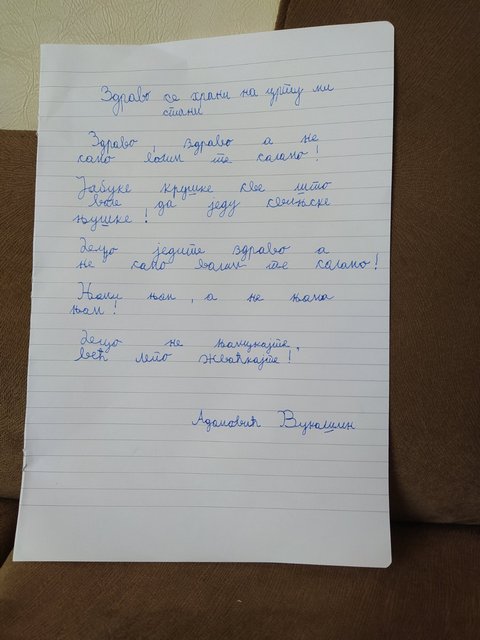 Здраво се храни на црту ми
стани
Здраво, здраво а не
само волим те саламо!
Јабуке крушке све што
воле да једу свињске
њушке!
Децо једите здраво а
не само волим те саламо!
Њам њам, а не њама
њам!
Децо не њамукајте,
већ лепо жваћкајте!
Адамовић Вукашин